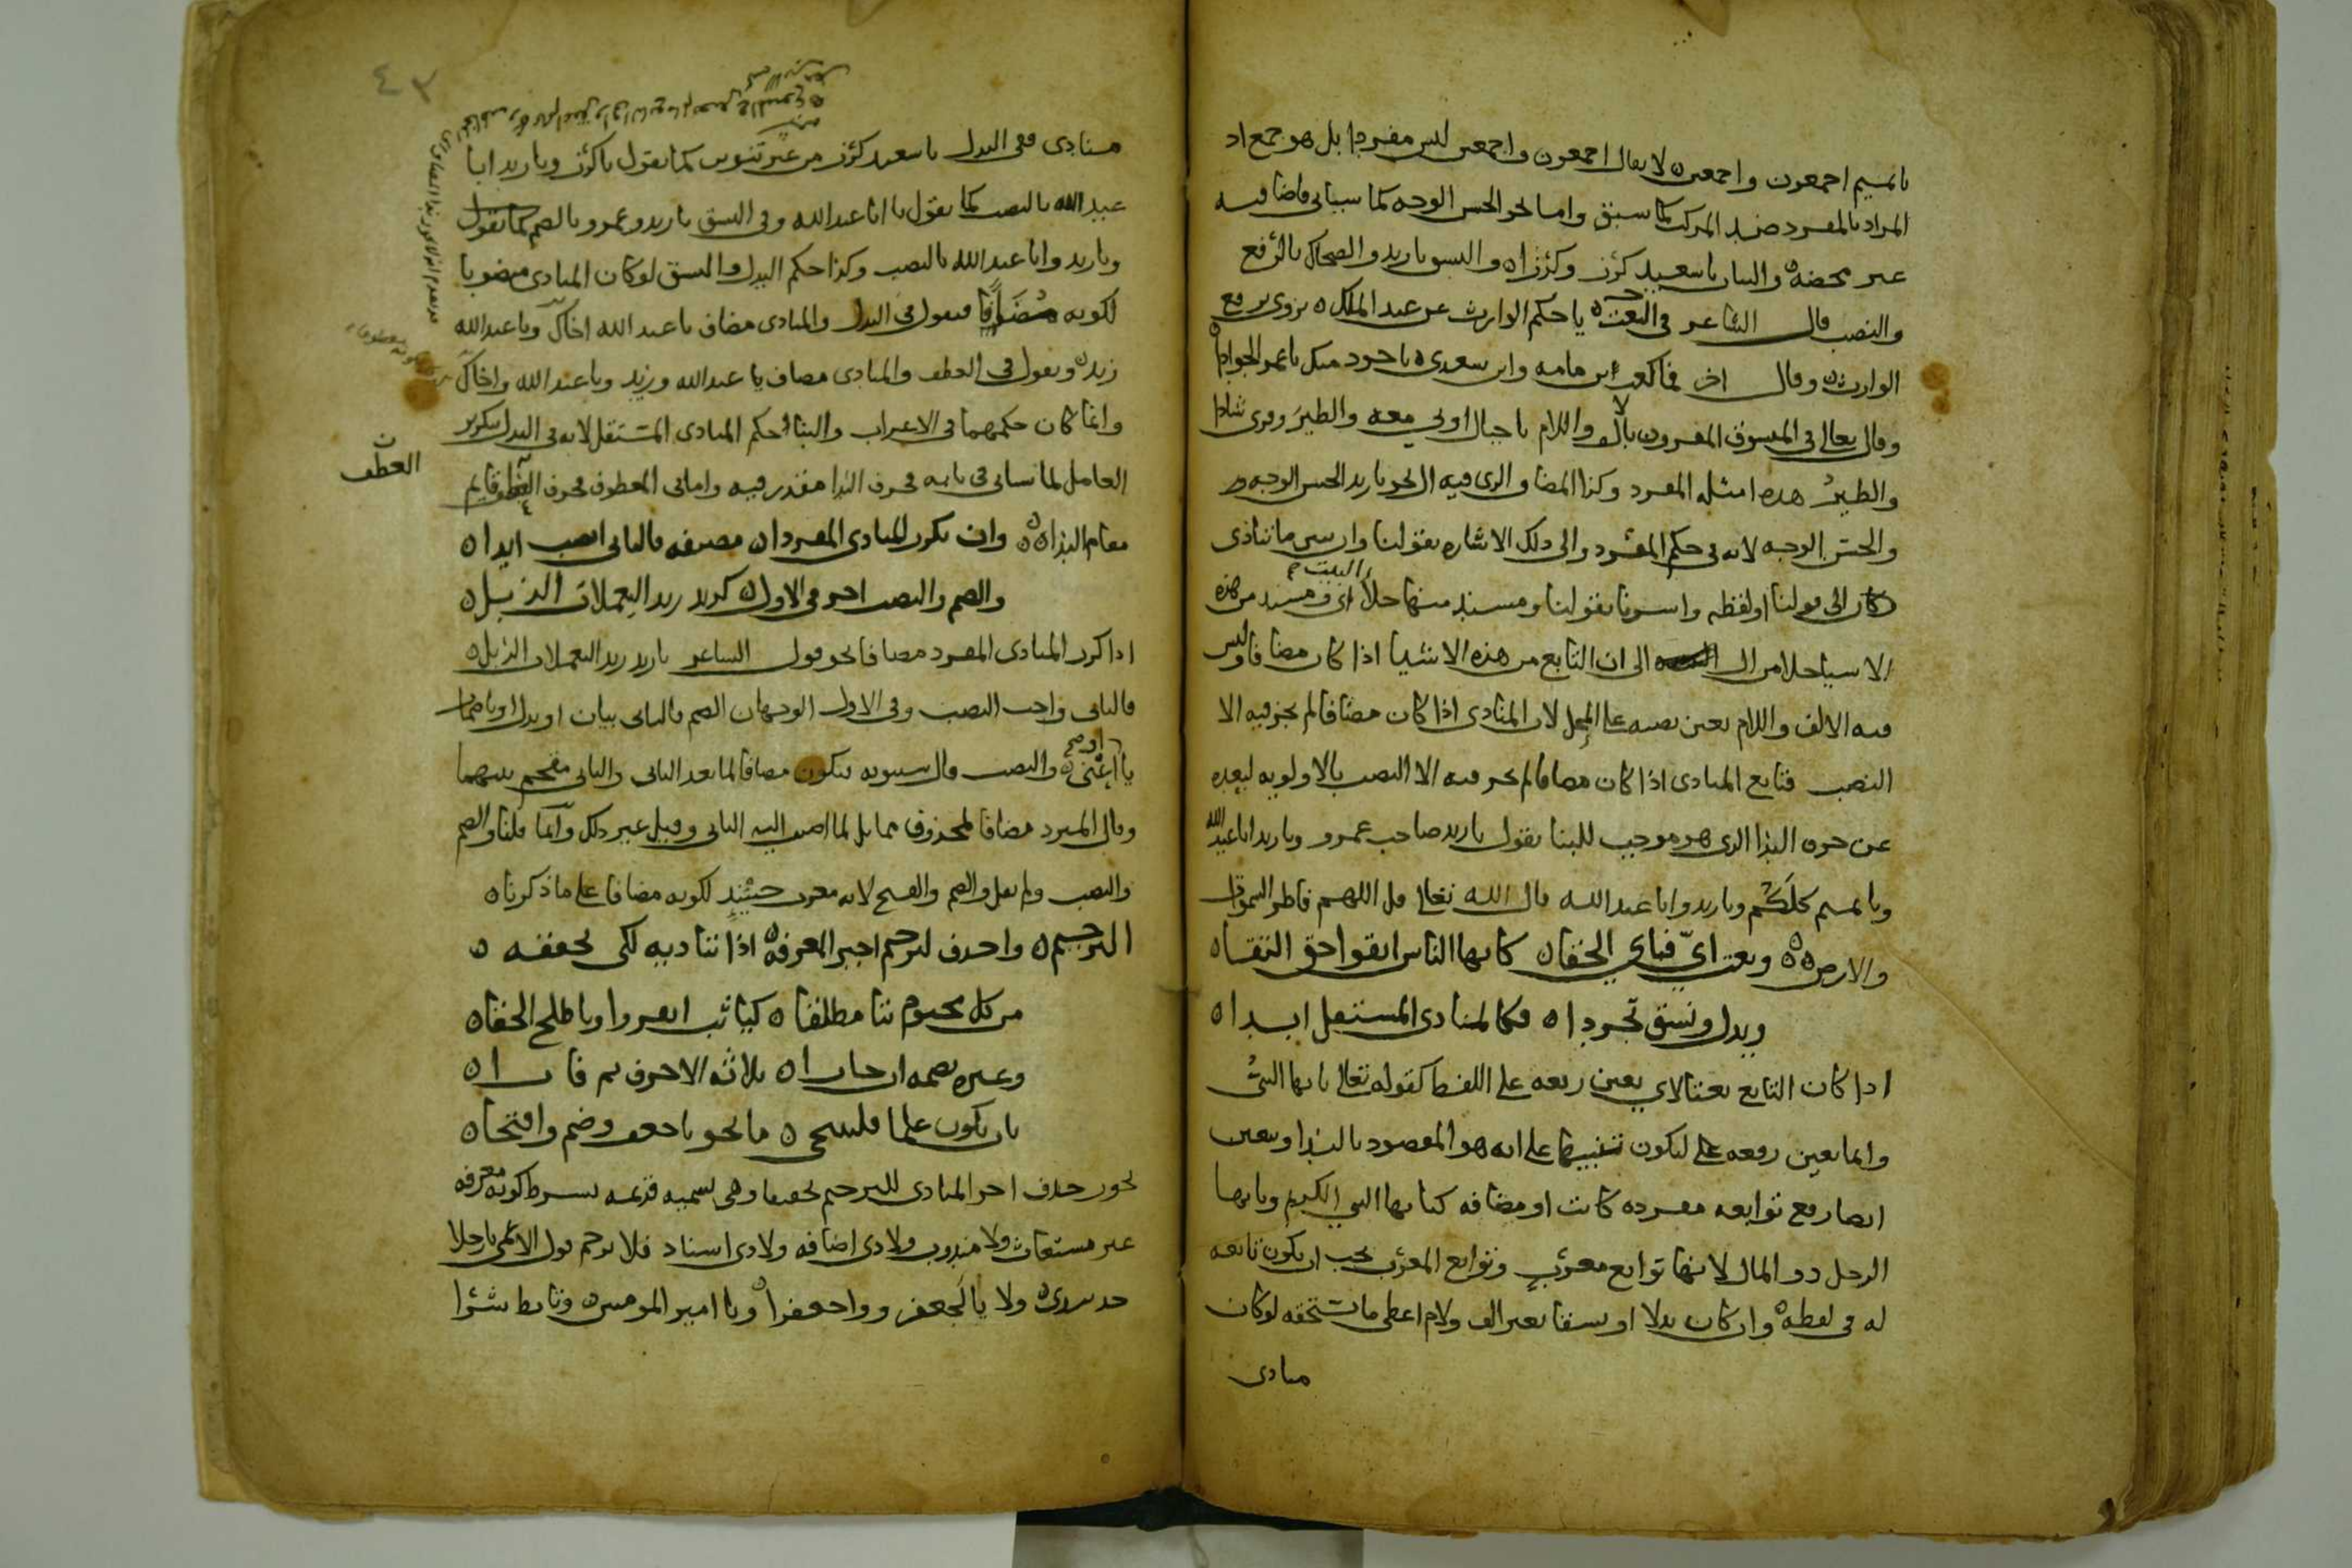 يا تميم اجمعون واجمعين لا يقال اجمعون واجمعين ليس مفردا بل هو جمع اذ
المراد بالمفرد ضد المركب كما سبق واما نحو الحسن الوجه كما سياتي فاضافته
غير محضة والبيان يا سعيد كرز وكرزا والنسق يا زيد والضحاك بالرفع
والنصب قال الشاعر في النعت يا حكم الوارث عن عبد الملك يروى برفع
الوارث وقال اخر فما كعب ابن مامه وابن سعدى باجود منك يا عمر الجوادا
وقال تعالى في المنسوق المقرون بالالف واللام يا جبال اوبي معه والطير وقرى شاذا
والطير هذه امثلة المفرد وكذا المضاف الذي فيه ال نحو يا زيد الحسن الوجه
والحسن الوجه لانه في حكم المفرد والى ذلك الاشارة بقولنا وان سي ما تنادى
كان الى قولنا او لفظه واشرنا بقولنا ومسند منها خلا البيت اي ومسند من هذه
الاشيا خلا من ال الى ان التابع من هذه الاشيا اذا كان مضافا وليس
فيه الالف واللام تعين نصبه على المحل لان المنادى اذا كان مضافا لم يجز فيه الا
النصب فتابع المنادى اذا كان مضافا لم يجز فيه الا النصب بالاولوية لبعده
عن حرف الندا الذي هو موجب للبنا تقول يا زيد صاحب عمرو ويا زيد ابا عبد الله
ويا تميم كلكم ويا زيد وابا عبد الله قال الله تعالى قل اللهم فاطر السموات
والارض ونعت اي فباي الخفا كايها الناس اتقوا حق التقا
وبدل ونسق تجردا فكالمنادى المستقل ابدا
اذا كان التابع نعتا لاي تعين رفعه على اللفظ كقوله تعالى يا ايها النبي
وانما تعين رفعه ليكون تنبيها على انه هو المقصود بالندا وتعين
ايضا رفع توابعه مفردة كانت او مضافة كيا ايها النبي الكريم ويا ايها
الرجل ذو المال لانها توابع معرب وتوابع المعرب يجب ان يكون تابعه
له في لفظه وان كان بدلا او نسقا بغير الف ولام اعطي ما يستحقه لو كان
منادى
منادى ففي البدل يا سعيد كرز من غير تنوين كما تقول يا كرز ويا زيد ابا
عبد الله بالنصب كما تقول يا ابا عبد الله وفي النسق يا زيد وعمرو بالضم كما تقول
ويا زيد وابا عبد الله بالنصب وكذا حكم البدل والنسق لو كان المنادى منصوبا
لكونه مضافا فتقول في البدل والمنادى مضاف يا عبد الله اخاك ويا عبد الله
زيد وتقول في العطف والمنادى مضاف يا عبد الله وزيد ويا عبد الله واخاك
وانما كان حكمهما في الاعراب والبنا حكم المنادى المستقل لانه في البدل بتكرير
العامل لما سياتي في بابه فحرف الندا مقدر فيه واما في المعطوف فحرف العطف قايم
العطف
مقام الندا وان تكرر المنادى المفردا مضيفه فالثاني انصب ابدا
والضم والنصب اجز في الاول كزيد زيد اليعملات الذبل
اذا كرر المنادى المفرد مضافا نحو قول الشاعر يا زيد زيد اليعملات الذبل
فالثاني واجب النصب وفي الاول الوجهان الضم فالثاني بيان او بدل او باضمار
يا او اعني والنصب قال سيبويه فيكون مضافا لما بعد الثاني والثاني مقحم بينهما
وقال المبرد مضافا لمحذوف مماثل لما اضيف اليه الثاني وقيل غير ذلك وانما قلنا والضم
والنصب ولم نقل والضم والفتح لانه معرب حينئذ لكونه مضافا على ما ذكرنا
الترخيم واحذف لترخيم اخير المعرفة اذا تناديه لكي تخففه
من كل مختوم بتا مطلقا كيا ثب انفروا ويا طلح الخفا
وغيره بضمه ان جاوزا ثلاثة الاحرف ثم فازا
بان يكون علما فليسمح ما نحو يا جعف وضم وافتحا
يجوز حذف اخر المنادى للترخيم تخفيفا وهي تسمية قديمة بشرط كونه معرفة
غير مستغاث ولا مندوب ولا ذي اضافة ولا ذي اسناد فلا ترخم قول الاعمى يا رجلا
خذ بيدي ولا يا لجعفر وواجعفرا ويا امير المومنين وتابط شرا